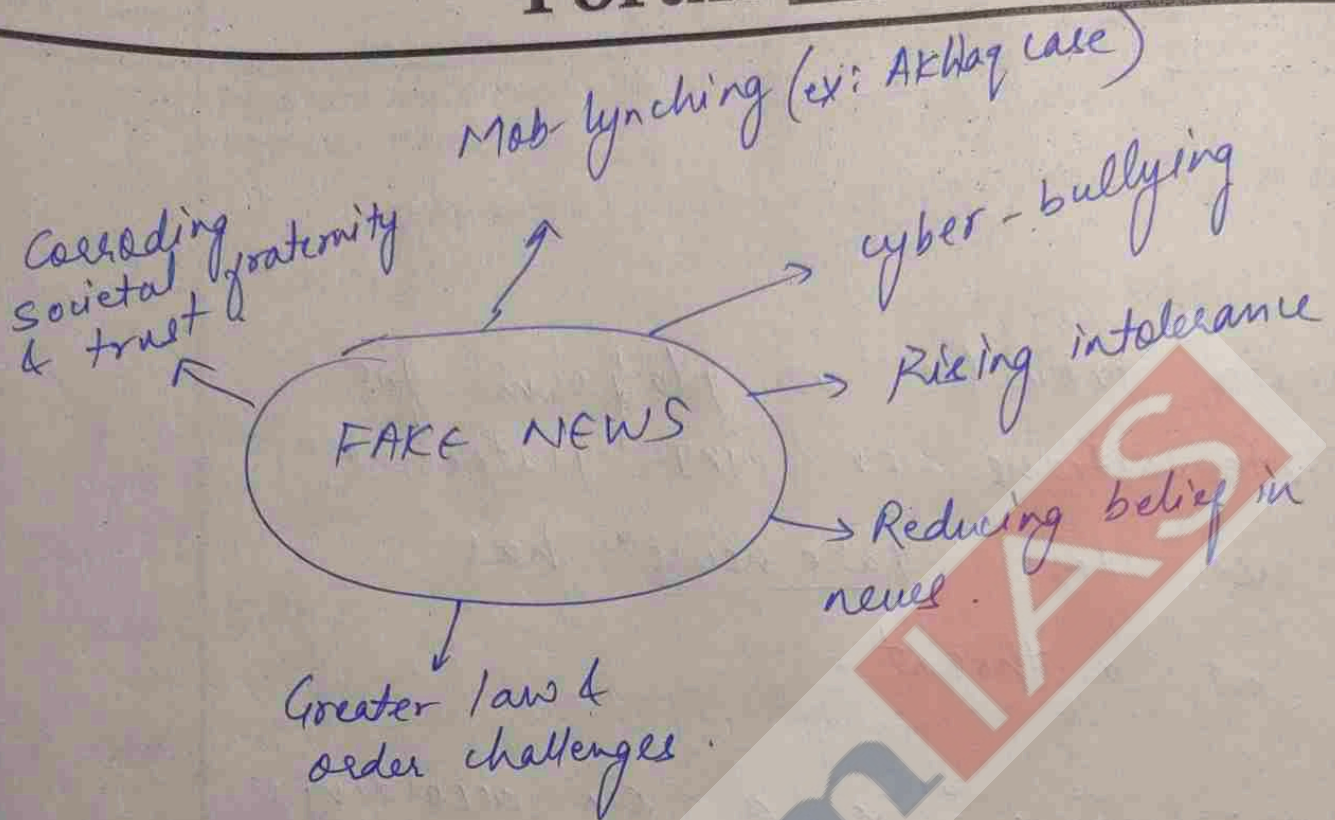 Mob lynching (ex: Akhlaq case)
Corroding
societal fraternity
& trust
cyber-bullying
Rising intolerance
FAKE NEWS
Reducing belief in
news.
Greater law &
order challenges.
IAS